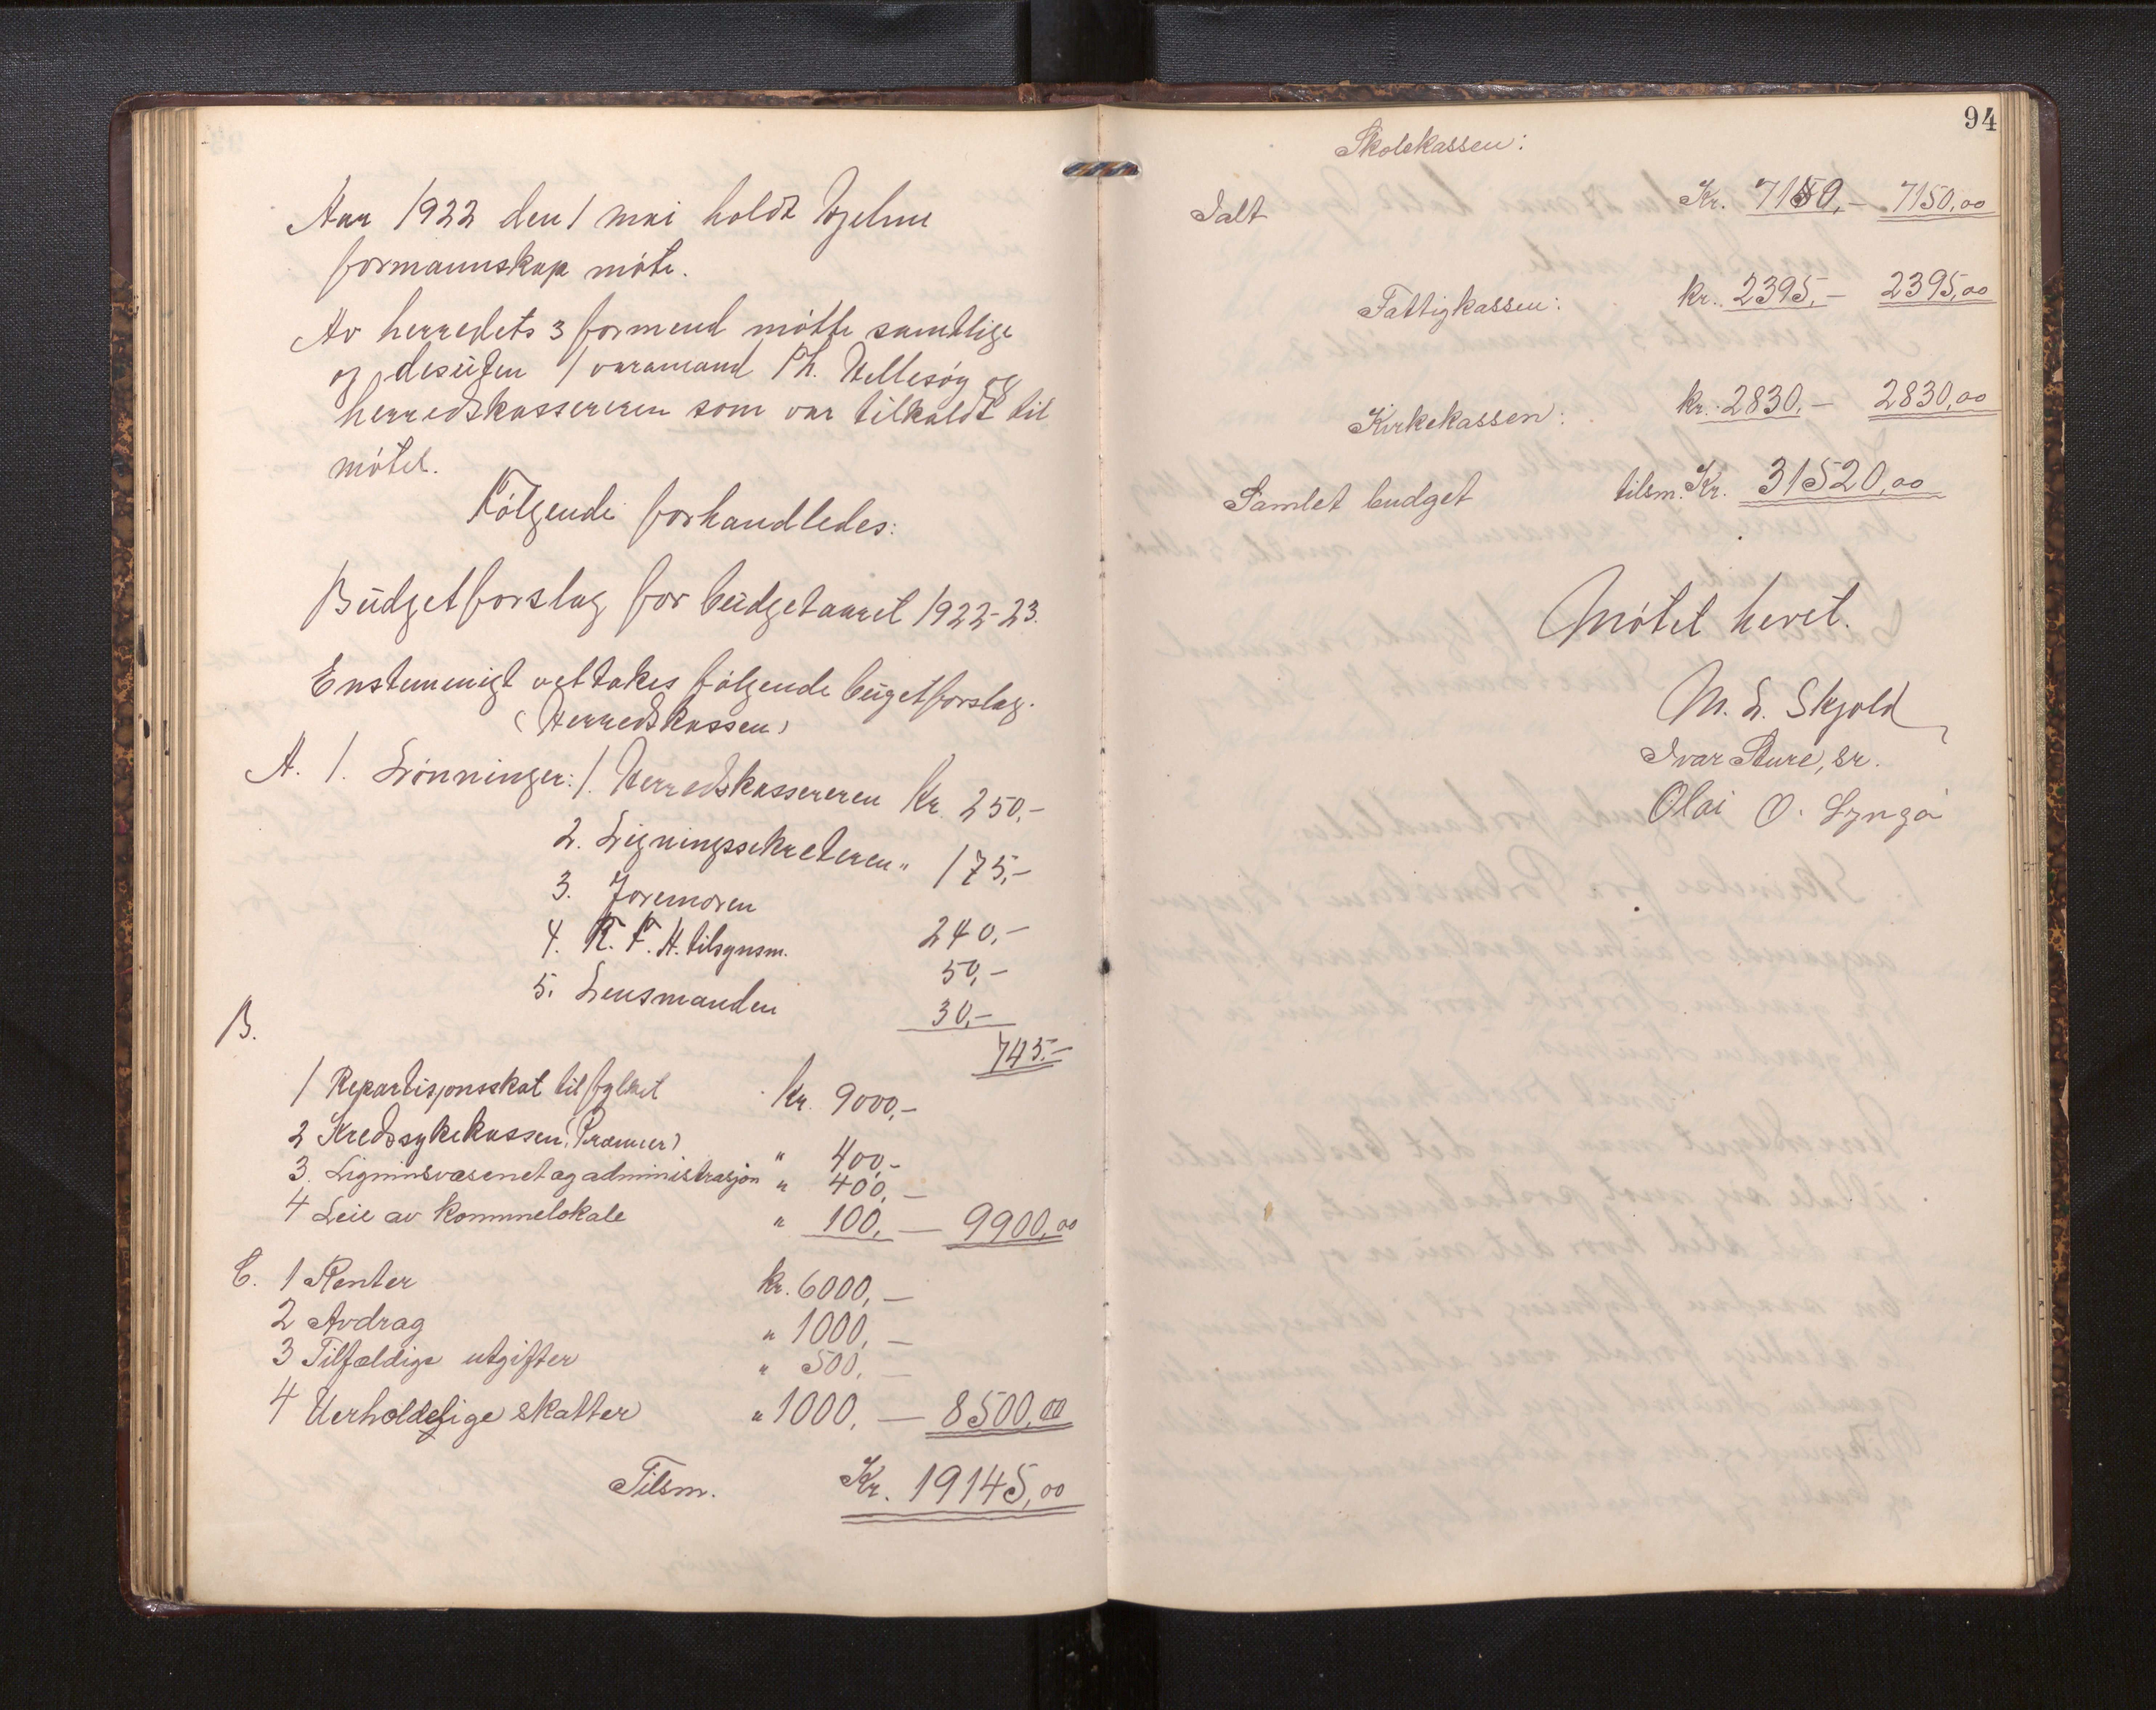 Aar 1922 den 1 mai holdt Hjelme
formannskap møte.
Av herredets 3 formend møtte samtlige
og desuten 1 varamand Th. Hellesøy og
herredskassereren som var tilkaldt til
møtet.
Følgende forhandledes:
Budgetforslag for budgetaaret 1922-23.
Enstemmigt vettokes følgende bugetforslag.
(Herredskassen)
A. 1. Lønninger: 1. Herredskassereren Kr. 250,-
2. Ligningssekreteren " 175,-
3. Joremoren 240,-
4. K. F. H. tilsynsm. 50,-
5. Lensmanden 30,-
745.-
B.
1 Repartisjonsskat til fylket Kr. 9000,-
2 Kredssykekassen (Præmier) " 400,-
3. Ligninsvæsenet og administrasjon " 400,-
4 Leie av kommnelokale " 100,- 9900,00
C. 1 Renter kr. 6000,-
2 Avdrag " 1000,-
3 Tilfældige utgifter " 500,-
4 Uerholdelige skatter " 1000,- 8500,00
Tilsm. Kr. 19145,00
94
Skolekassen:
Ialt Kr. 7150,- 7150,00
Fattigkassen: kr. 2395,- 2395,00
Kirkekassen: kr. 2830,- 2830,00
Samlet budget tilsm. Kr. 31520,00
Møtet hevet.
M. L. Skjold
Ivar Sture, sr.
Olai O. Lyngø